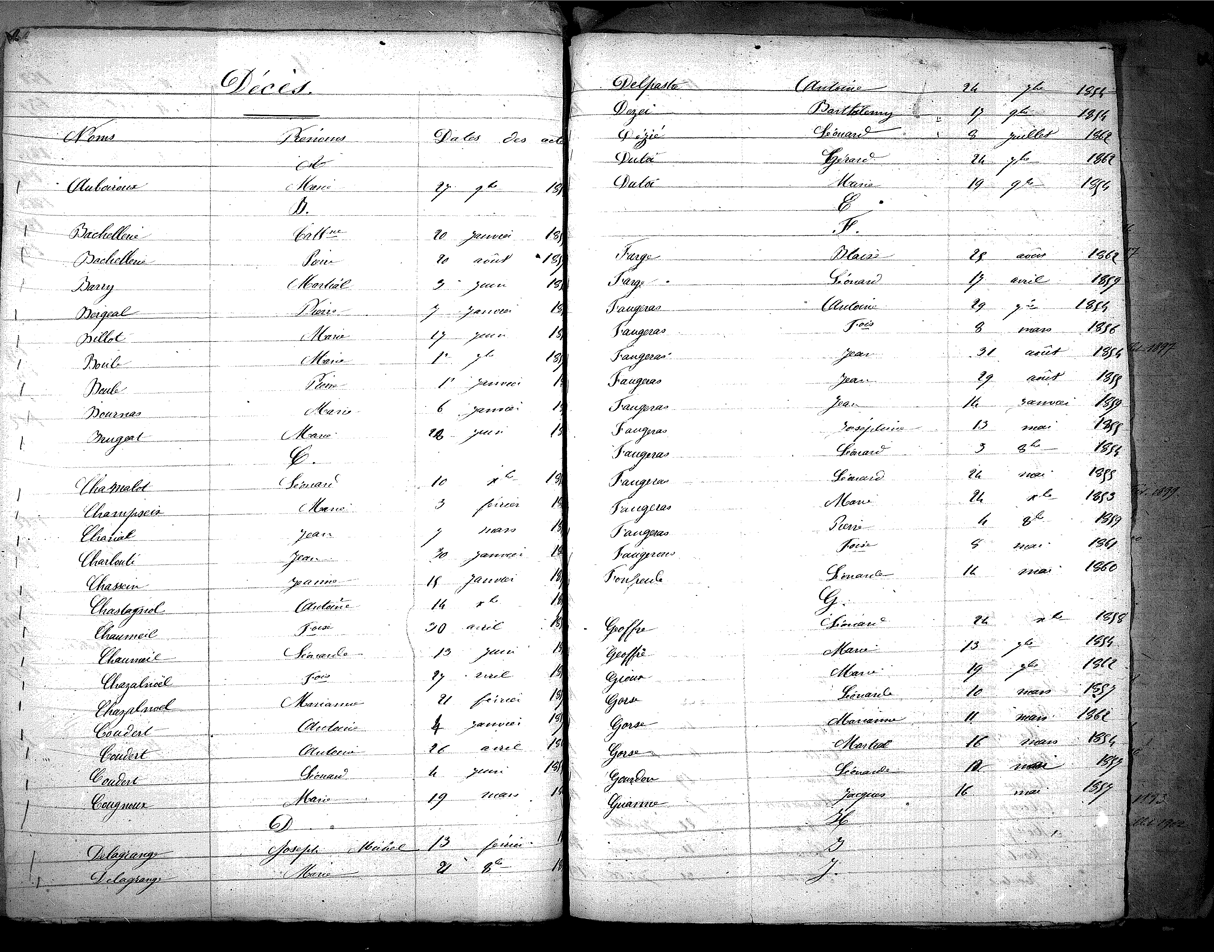 Décès.
Noms Prénoms Dates des act
A
Marie 27 9bre 18
B.
Bachellerie Cath.ne 20 janvier 18
Bachellerie 20 août 18
Barry Martial 3 juin 18
Pierre 7 janvier 18
Billot Marie 17 juin 18
Boule Marie 1er 18
Boule Pierre 1er janvier 18
Bournas Marie 6 janvier 18
Marie juin 18
C.
Chamalot Léonard 10 xbre 18
Marie 3 février 18
Chanat Jean 7 mars 18
Jean 30 janvier 18
Chassein Jeanne 15 janvier 18
Chastagnol Antoine 14 xbre 18
Chaumeil Foise 30 avril 18
Chaumeil Léonarde 13 juin 18
Chazalnoël Fois 27 avril 18
Marianne 21 février 18
Coudert Antoine 4 janvier 18
Coudert Antoine 26 avril 18
Coudert Léonard 4 juin 18
Cougnoux Marie 19 mars 18
D
Delagrange Joseph Michel 13 février 1
Delagrange Marie 21 8bre 18
Antoine 24 1854
Barthélemy 17 9bre 1854
Léonard 8 juillet 1862
Gérard 24 1862
Marie 19 9bre 1854
E
F.
Farge Blaise 25 août 1862
Farge Léonard 17 avril 1859
Faugeras Antoine 29 1854
Faugeras Fois 8 mars 1856
Faugeras Jean 31 août 1854
Faugeras Jean 29 août 1855
Faugeras Jean 14 janvier 1859
Faugeras Joséphine 13 mai 1855
Faugeras Léonard 3 8bre 1854
Faugeras Léonard 24 mai 1855
Faugeras Marie 24 xbre 1853
Faugeras Pierre 4 8bre 1859
Faugerous Foise 8 mai 1861
Léonarde 14 mai 1860
G.
Geoffre Léonard 24 xbre 1858
Geoffre Marie 13 1854
Gioux Marie 19 1862
Gorse Léonarde 10 mars 1857
Gorse Marianne 11 mars 1862
Gorse Martial 16 mars 1854
Gourdon Léonarde mai 1859
Jacques 16 mai 1857
H
I
J.